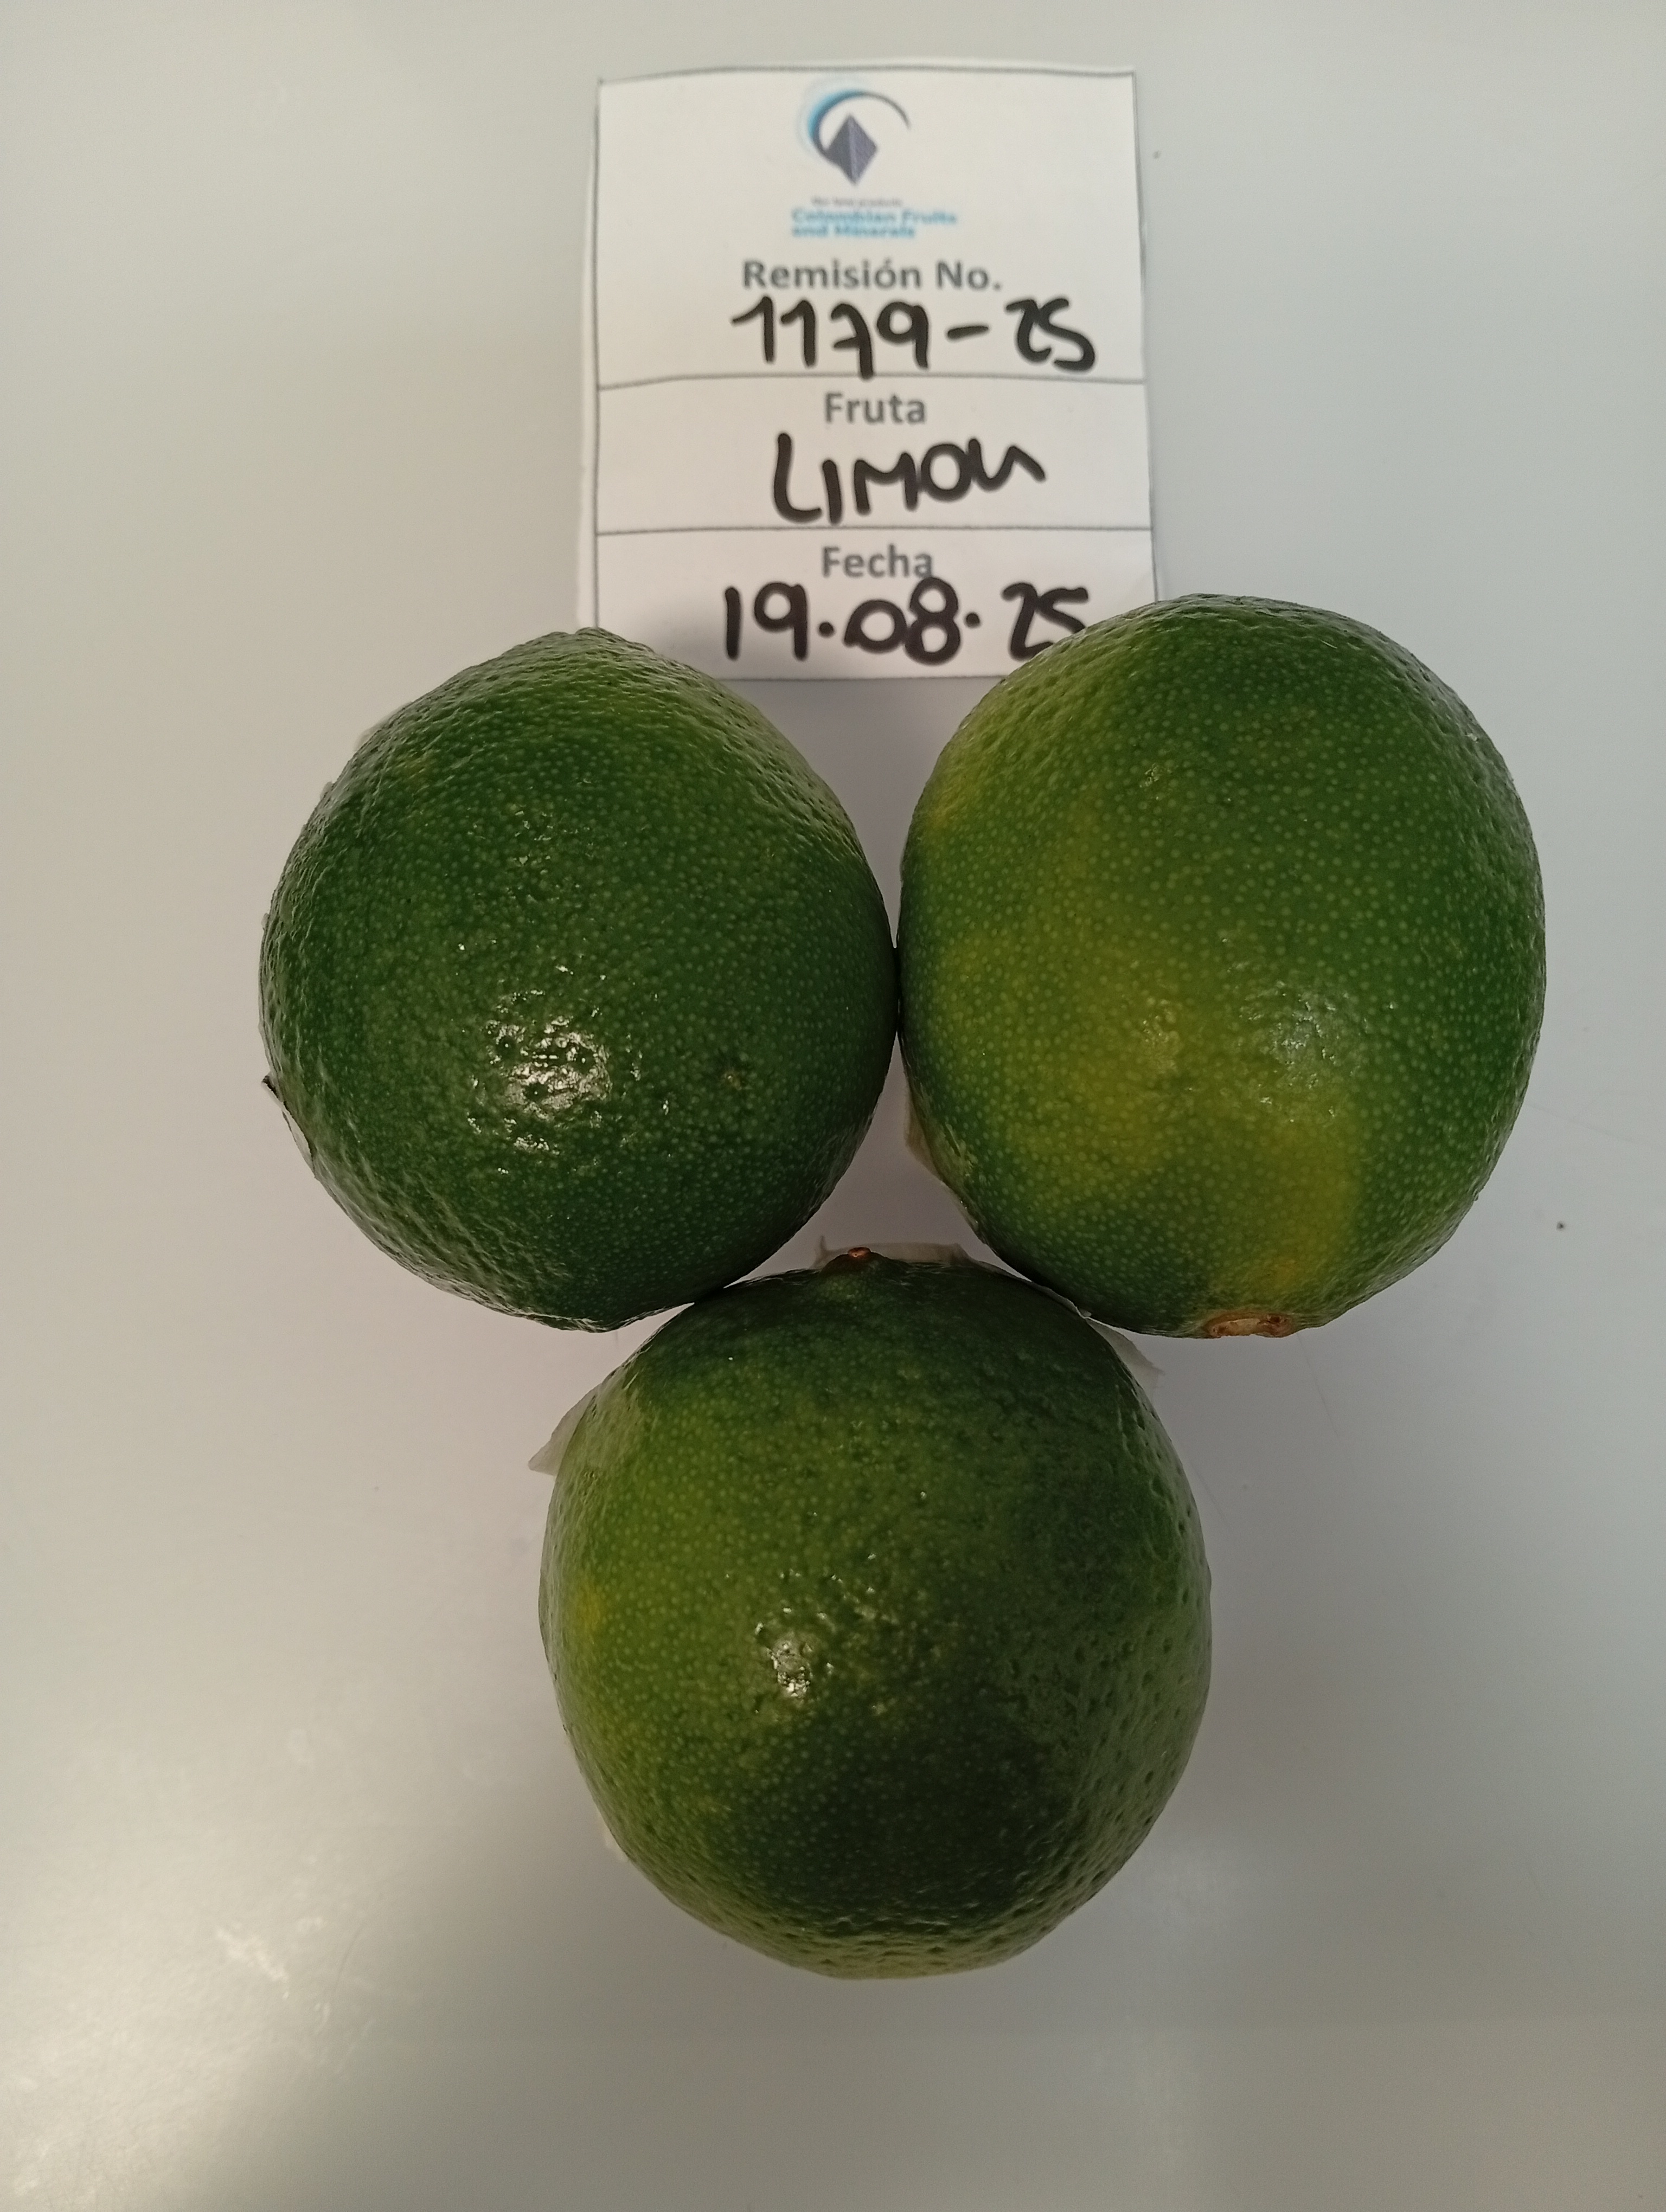 Colombian Fruits
and Minerals
Remisión No.
1179-25
Fruta
LIMON
Fecha
19.08.25